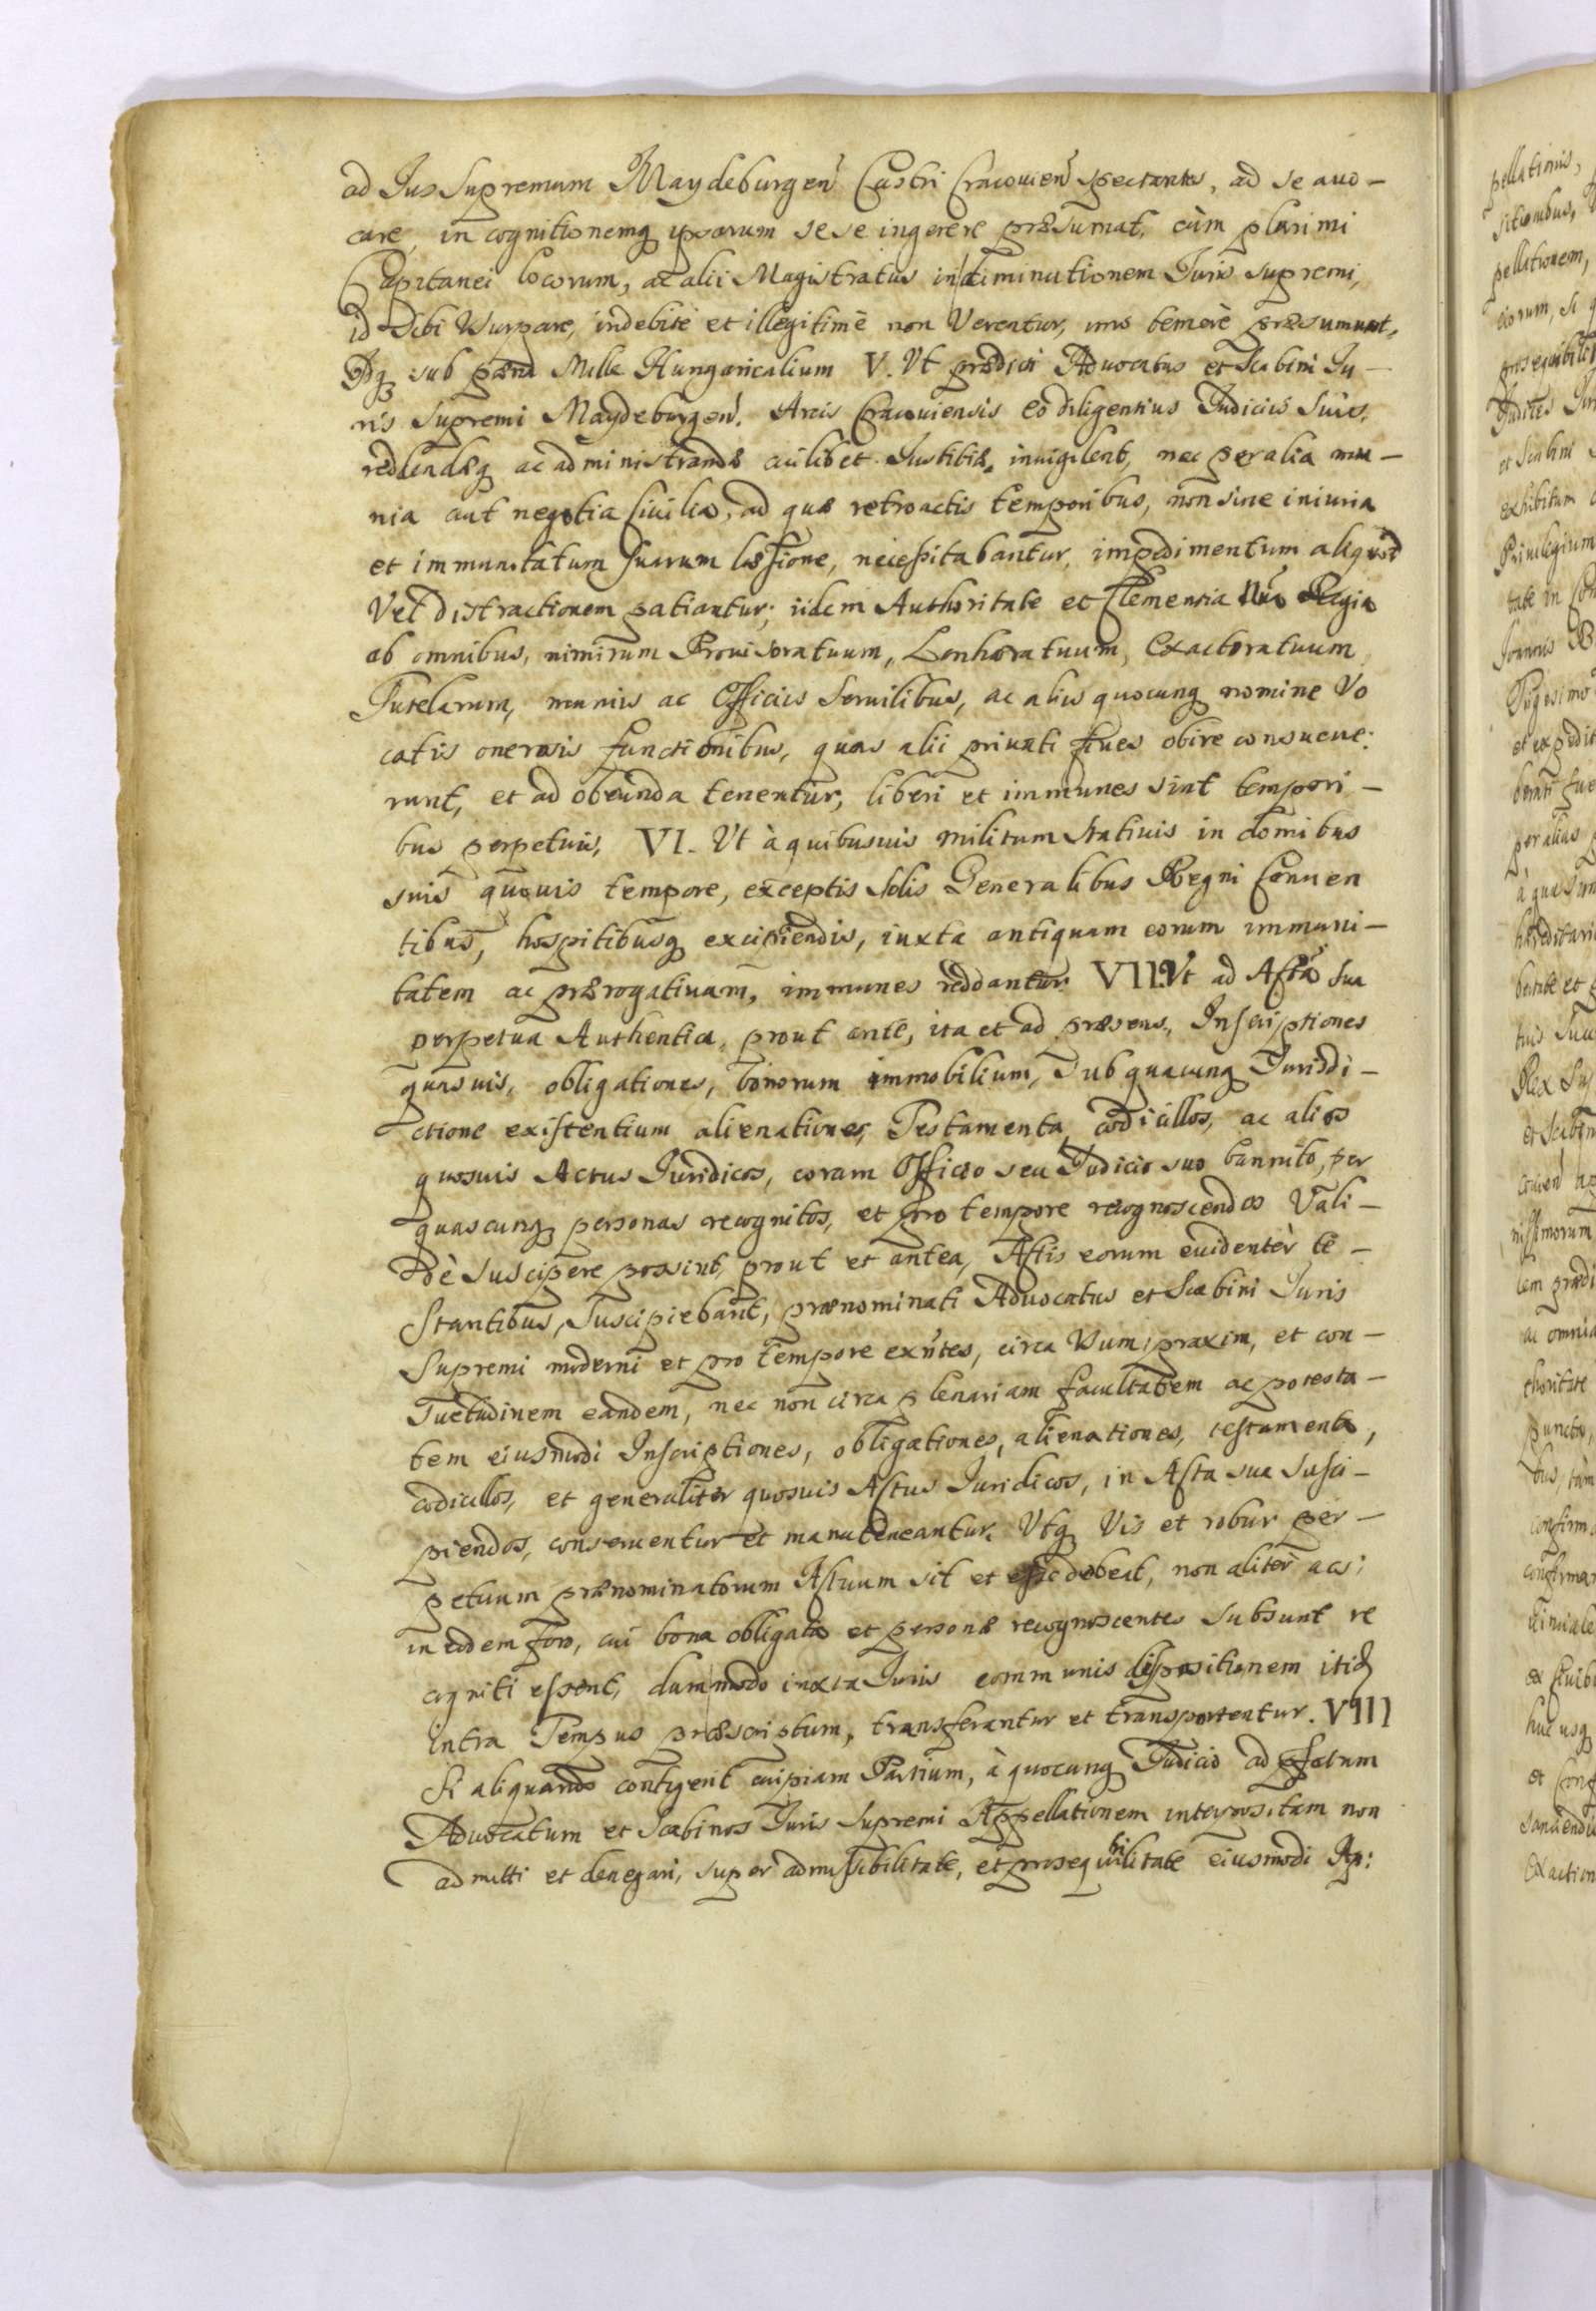 ad Jus Supremum Maydeburgen̄ Castri Cracouien̄ spectantes, ad se auo-
care, in cognitionemq ipsarum sese ingerere præsumat, cùm plurimi
Capitanei locorum, ac alii Magistratus in diminutionem Juris supremi,
id sibi Vsurpare, indebitè et illegitimè non Vereatur, imo temerè præsumunt,
Idq sub pæna Mille Hungaricalium V. Vt prædicti Aduocatus et Scabini Ju-
ris Supremi Maydeburgen̄. Arcis Cracouiensis eò diligentius Judiciis suis,
reddendæq ac administrandæ cuilibet Justitiæ, inuigilent, nec per alia mu-
nia aut negotia Ciuilia, ad quæ retroactis temporibus, non sine iniuria
et immunitatum suarum læsione, necessitabantur, impedimentum aliquod
Vel distractionem patiantur; iidem Authoritate et Clementia Nr̄a Regia
ab omnibus, nimirum Prouisoratuum, Lonharatuum, Exactoratuum
Tutelarum, muniis ac Officiis Seruilibus, ac aliis quocunq nomine Vo
catis onerosis functionibus, quas alii priuati Ciues obire consueue:
runt, et ad obeunda tenentur, liberi et immunes sint tempori-
bus perpetuis, VI. Vt à quibusuis militum Statiuis in domibus
suis quouis tempore, exceptis solis Generalibus Regni Conuen
tibus, hospitibusq excipiendis, iuxta antiquam eorum immuni-
tatem ac prærogatiuam, immunes reddantur VII. Vt ad Acta sua
perpetua Authentica, prout ante, ita et ad præsens, Inscriptiones
quasuis, obligationes, bonorum immobilium, Sub quacunq Jurisdi-
ctione existentium alienationes, Testamenta, codicillos, ac alios
quosuis Actus Juridicos, coram Officio seu Judicio suo bannito, per
quascunq personas recognitos, et pro tempore recognoscendos Vali-
dè suscipere possint, prout et antea, Actis eorum euidentèr te-
stantibus, Suscipiebant, prænominati Aduocatus et Scabini Juris
Supremi moderni et pro tempore exn̄tes, circa Vsum, praxim, et con-
suetudinem eandem, nec non circa plenariam facultatem ac potesta-
tem eiusmodi Inscriptiones, obligationes, alienationes, testamenta,
codicillos, et generalitèr quosuis Actus Juridicos, in Acta sua susci-
piendos, conseruentur et manuteneantur. Vtq Vis et robur per-
petuum prænominatorum Actuum sit et esse debeat, non alitèr acsi
in eodem foro, cui bona obligata et personæ recognoscentes Subsunt re
cogniti essent, dummodo iuxta Juris communis dispositionem itid
intra Tempus præscriptum, transferantur et transportentur. VIII
Si aliquando contigerit cuipiam Partium, à quocunq Judicio ad pfatum
Aduocatum et Scabinos Juris Supremi Appellationem interpositam non
admitti et denegari, super admissibilitate, et prosequibilitate eiusmodi Ap: